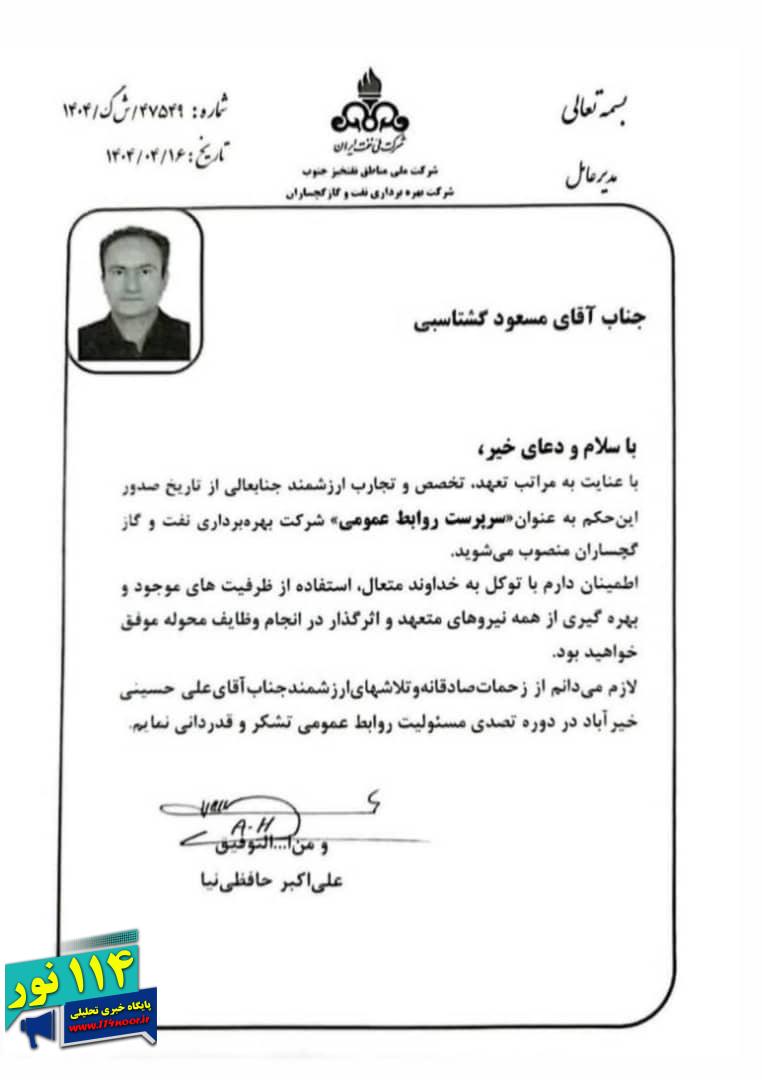 بسمه تعالی
مدیرعامل
شرکت ملی نفت ایران
شرکت ملی مناطق نفتخیز جنوب
شرکت بهره برداری نفت و گاز گچساران
شماره: ۴۷۵۴۹/ش گ/۱۴۰۴
تاریخ: ۱۴۰۴/۰۴/۱۶
جناب آقای مسعود گشتاسبی
با سلام و دعای خیر،
با عنایت به مراتب تعهد، تخصص و تجارب ارزشمند جنابعالی از تاریخ صدور
این‌حکم به عنوان «سرپرست روابط عمومی» شرکت بهره‌برداری نفت و گاز
گچساران منصوب می‌شوید.
اطمینان دارم با توکل به خداوند متعال، استفاده از ظرفیت های موجود و
بهره گیری از همه نیروهای متعهد و اثرگذار در انجام وظایف محوله موفق
خواهید بود.
لازم می‌دانم از زحمات صادقانه و تلاشهای ارزشمند جناب آقای علی حسینی
خیر آباد در دوره تصدی مسئولیت روابط عمومی تشکر و قدردانی نمایم.
A-H
و من ا... التوفیق
علی‌اکبر حافظی‌نیا
۱۱۴ نور
پایگاه خبری تحلیلی
www.114noor.ir